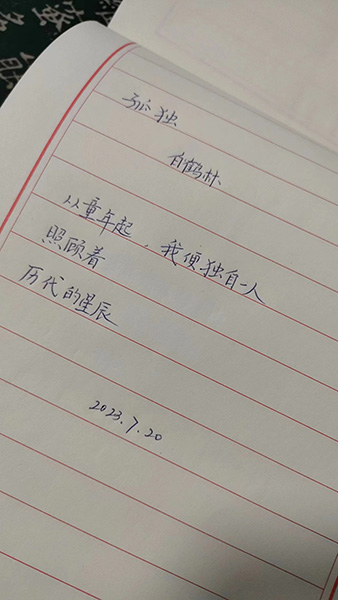 孤独
白鹤林
从童年起，我便独自一人
照顾着
历代的星辰
2023.7.20